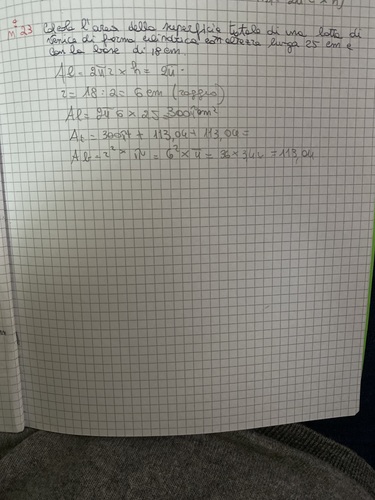 n° 23 Calcola l'area della superficie totale di una latta di
vernice di forma cilindrica con altezza lunga 25 cm e
con la base di 18 cm.
Al = 2πr × h = 2π ·
r = 18 : 2 = 6 cm (raggio)
Al = 2π 6 × 25 = 300π cm²
At = 300π + 113,04 + 113,04 =
Ab = r² × π = 6² × π = 36 × 3,14 = 113,04